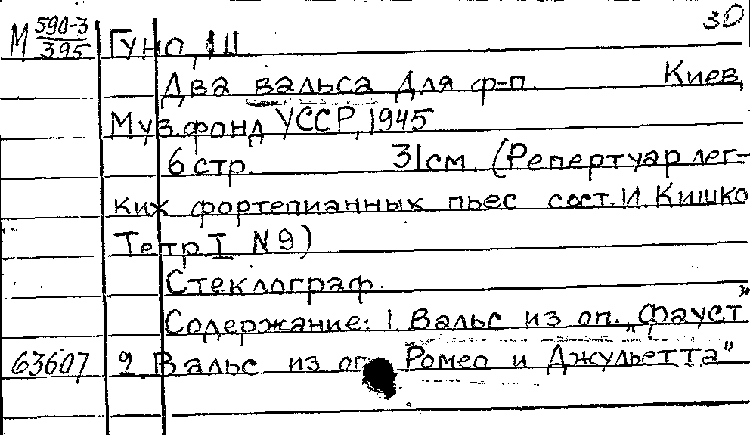 30
М 590-3/395 Гуно, Ш
Два вальса для ф-п. Киев,
Муз.фонд УССР, 1945
6 стр. 31см. (Репертуар лег-
ких фортепианных пьес сост. И. Кишко
Тетр I N 9)
Стеклограф.
Содержание: 1. Вальс из оп. „Фауст"
63607 2. Вальс из оп. Ромео и Джульетта"